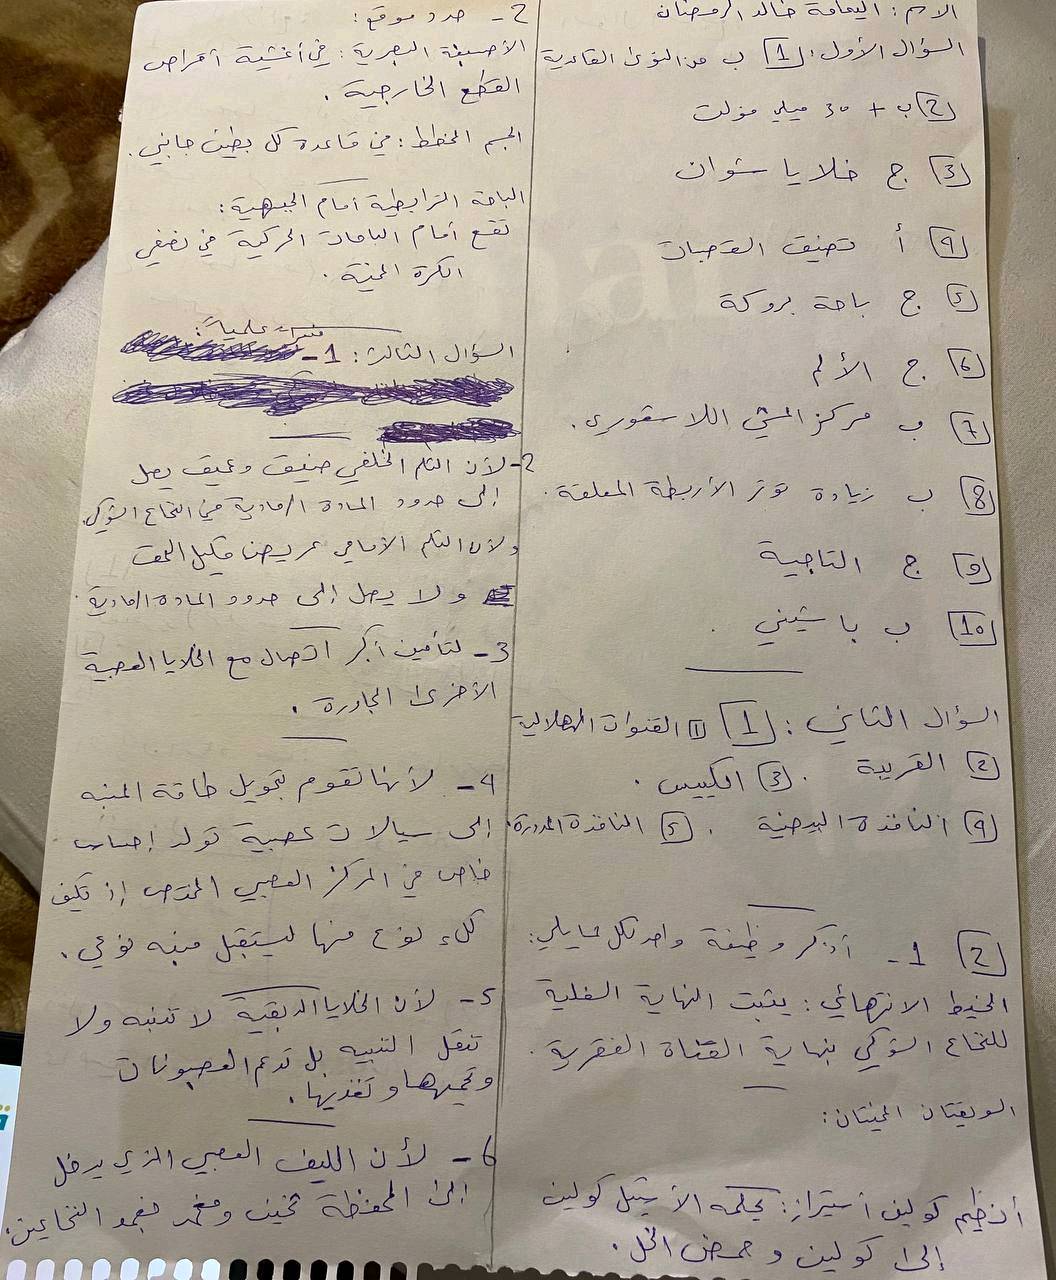 الاسم : اليمامة خالد الرمضان
السؤال الأول : 1 ب من النوى القاعدية
2 ب + 30 ميلي فولت
3 ج خلايا شوان
4 أ تضيق القصبات
5 ج باحة بروكة
6 ج الألم
7 ب مركز المشي اللاسفوري .
8 ب زيادة توتر الأربطة المعلقة .
9 ج التاجية
10 ب باشيني .
السؤال الثاني : 1 1 القنوات الهلالية
2 القريبة . 3 الكييس .
4 النافذة البيضية . 5 النافذة المدورة .
2 1 - أذكر وظيفة واحدة لكل مما يلي :
الخيط الانتهائي : يثبت النهاية السفلية
للنخاع الشوكي بنهاية القناة الفقرية .
السويقتان المخيتان :
أنظيم كولين أستيراز : يحلمه الأستيل كولين
إلى كولين و حمض الخل .
2 - حدد موقع :
الأصبغة البصرية : في أغشية أقراص
القطع الخارجية .
الجسم المخطط : في قاعدة كل بطين جانبي .
الباحة الترابطية أمام الجبهية :
تقع أمام الباحات الحركية في نصفي
الكرة المخية .
السؤال الثالث : 1 - علمياً :
2 - لأن الثلم الخلفي ضيق وعميق يصل
إلى حدود المادة الرمادية في النخاع الشوكي .
ولأن الثلم الأمامي عريض قليل العمق
ولا يصل إلى حدود المادة الرمادية .
3 - لتأمين أكبر اتصال مع الخلايا العصبية
الأخرى المجاورة .
4 - لأنها تقوم بتحويل طاقة المنبه
إلى سيالات عصبية تولد إحساس
خاص في المركز العصبي المختص إذ تكيف
كل نوع منها ليستقبل منبه نوعي .
5 - لأن الخلايا الدبقية لا تتنبه ولا
تنقل التنبيه بل تدعم العصبونات
وتحميها وتغذيها .
6 - لأن الليف العصبي الذي يدخل
إلى المحفظة ثخين ومغمد بغمد النخاعين .